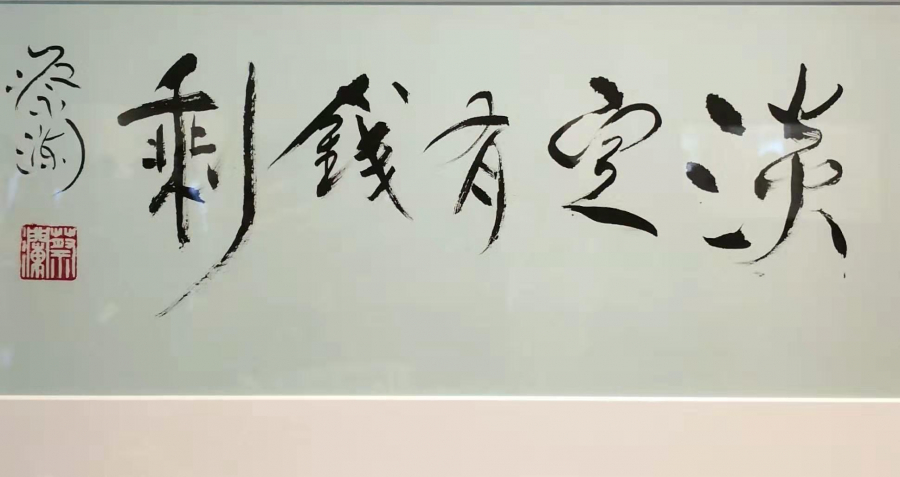 淡定有錢剩
蔡瀾
蔡瀾